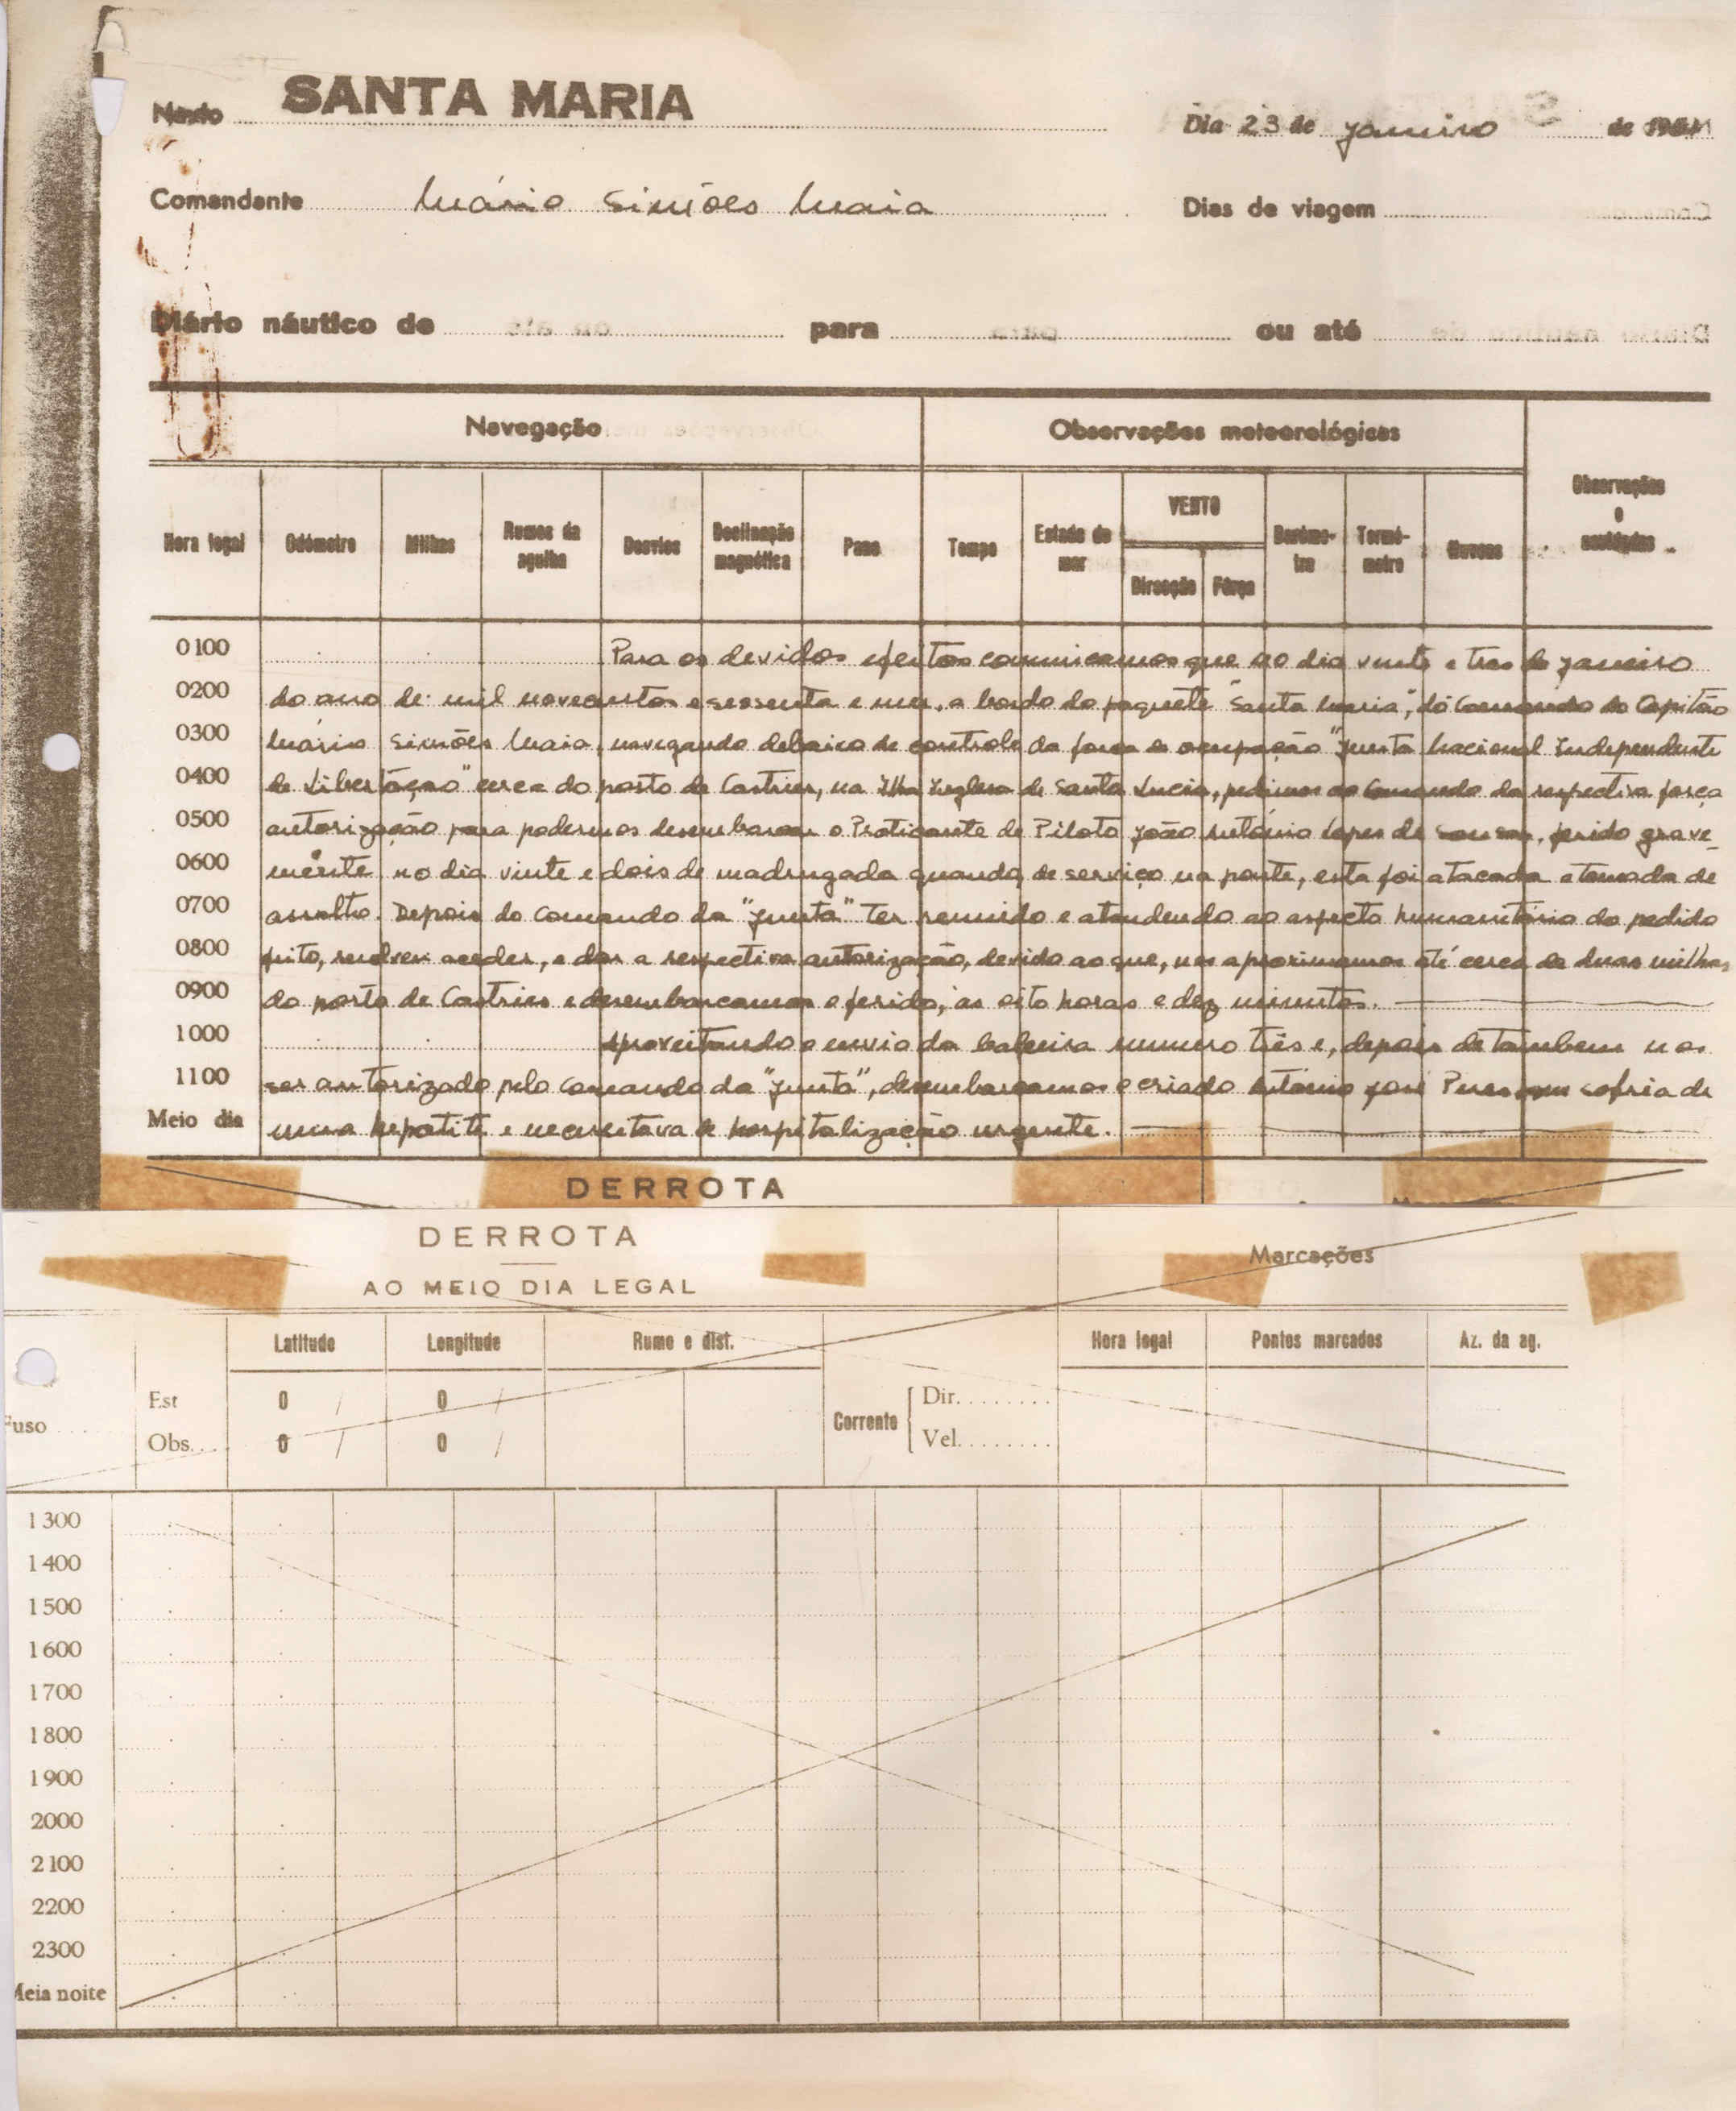 Navio SANTA MARIA Dia 23 de janeiro de 1961
Comandante Mário Simões Maia Dias de viagem
Diário náutico de para ou até
Navegação Observações meteorológicas Observações e
Hora legal Odómetro Milhas Rumos da agulha Desvios Declinação magnética Pano Tempo Estado do mar VENTO Direcção Fôrça Barómetro Termómetro Nuvens
0100 Para os devidos efeitos comunicamos que ao dia vinte e tres de janeiro
0200 do ano de mil novecentos e sessenta e um, a bordo do paquete "Santa Maria", do Comando do Capitão
0300 Mário Simões Maia, navegando debaixo de controle da força de ocupação "Junta Nacional Independente
0400 de Libertação" cerca do porto de Castries, na Ilha Inglesa de Santa Lucia, pedimos ao Comando da respectiva força
0500 autorização para podermos desembarcar o Praticante de Piloto João António Lopes de Sousa, ferido grave-
0600 mente no dia vinte e dois de madrugada quando, de serviço na ponte, esta foi atacada e tomada de
0700 assalto. Depois do Comando da "Junta" ter reunido e atendendo ao aspecto humanitário do pedido
0800 feito, resolveu aceder, e dar a respectiva autorização, devido ao que, nos aproximamos até cerca de duas milhas
0900 do porto de Castries e desembarcamos o ferido, às oito horas e dez minutos.
1000 Aproveitando o envio da baleeira numero três e, depois de tambem nos
1100 ser autorizado pelo Comando da "Junta", desembarcamos o criado António José Peres que sofria de
Meio dia uma hepatite e necessitava de hospitalização urgente.
DERROTA
DERROTA
AO MEIO DIA LEGAL Marcações
Latitude Longitude Rumo e dist. Hora legal Pontos marcados Az. da ag.
Fuso Est 0 / 0 / Corrente Dir.
Obs. 0 / 0 / Vel.
1300
1400
1500
1600
1700
1800
1900
2000
2100
2200
2300
Meia noite